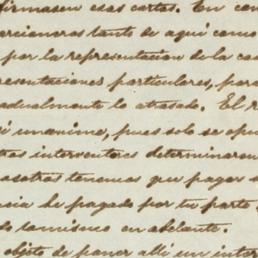 firmasen esas cartas. En con
orcionaros tanto de aquí como
por la representacion de la cas
resentaciones particulares, para
adualmente lo atrasado. El r
i unanime, pues solo se opu
tras interventores determinaron
osotros tenemos que pagar a
ncia he pagado por tu parte
do lo mismo en adelante.
objeto de poner allí un inter